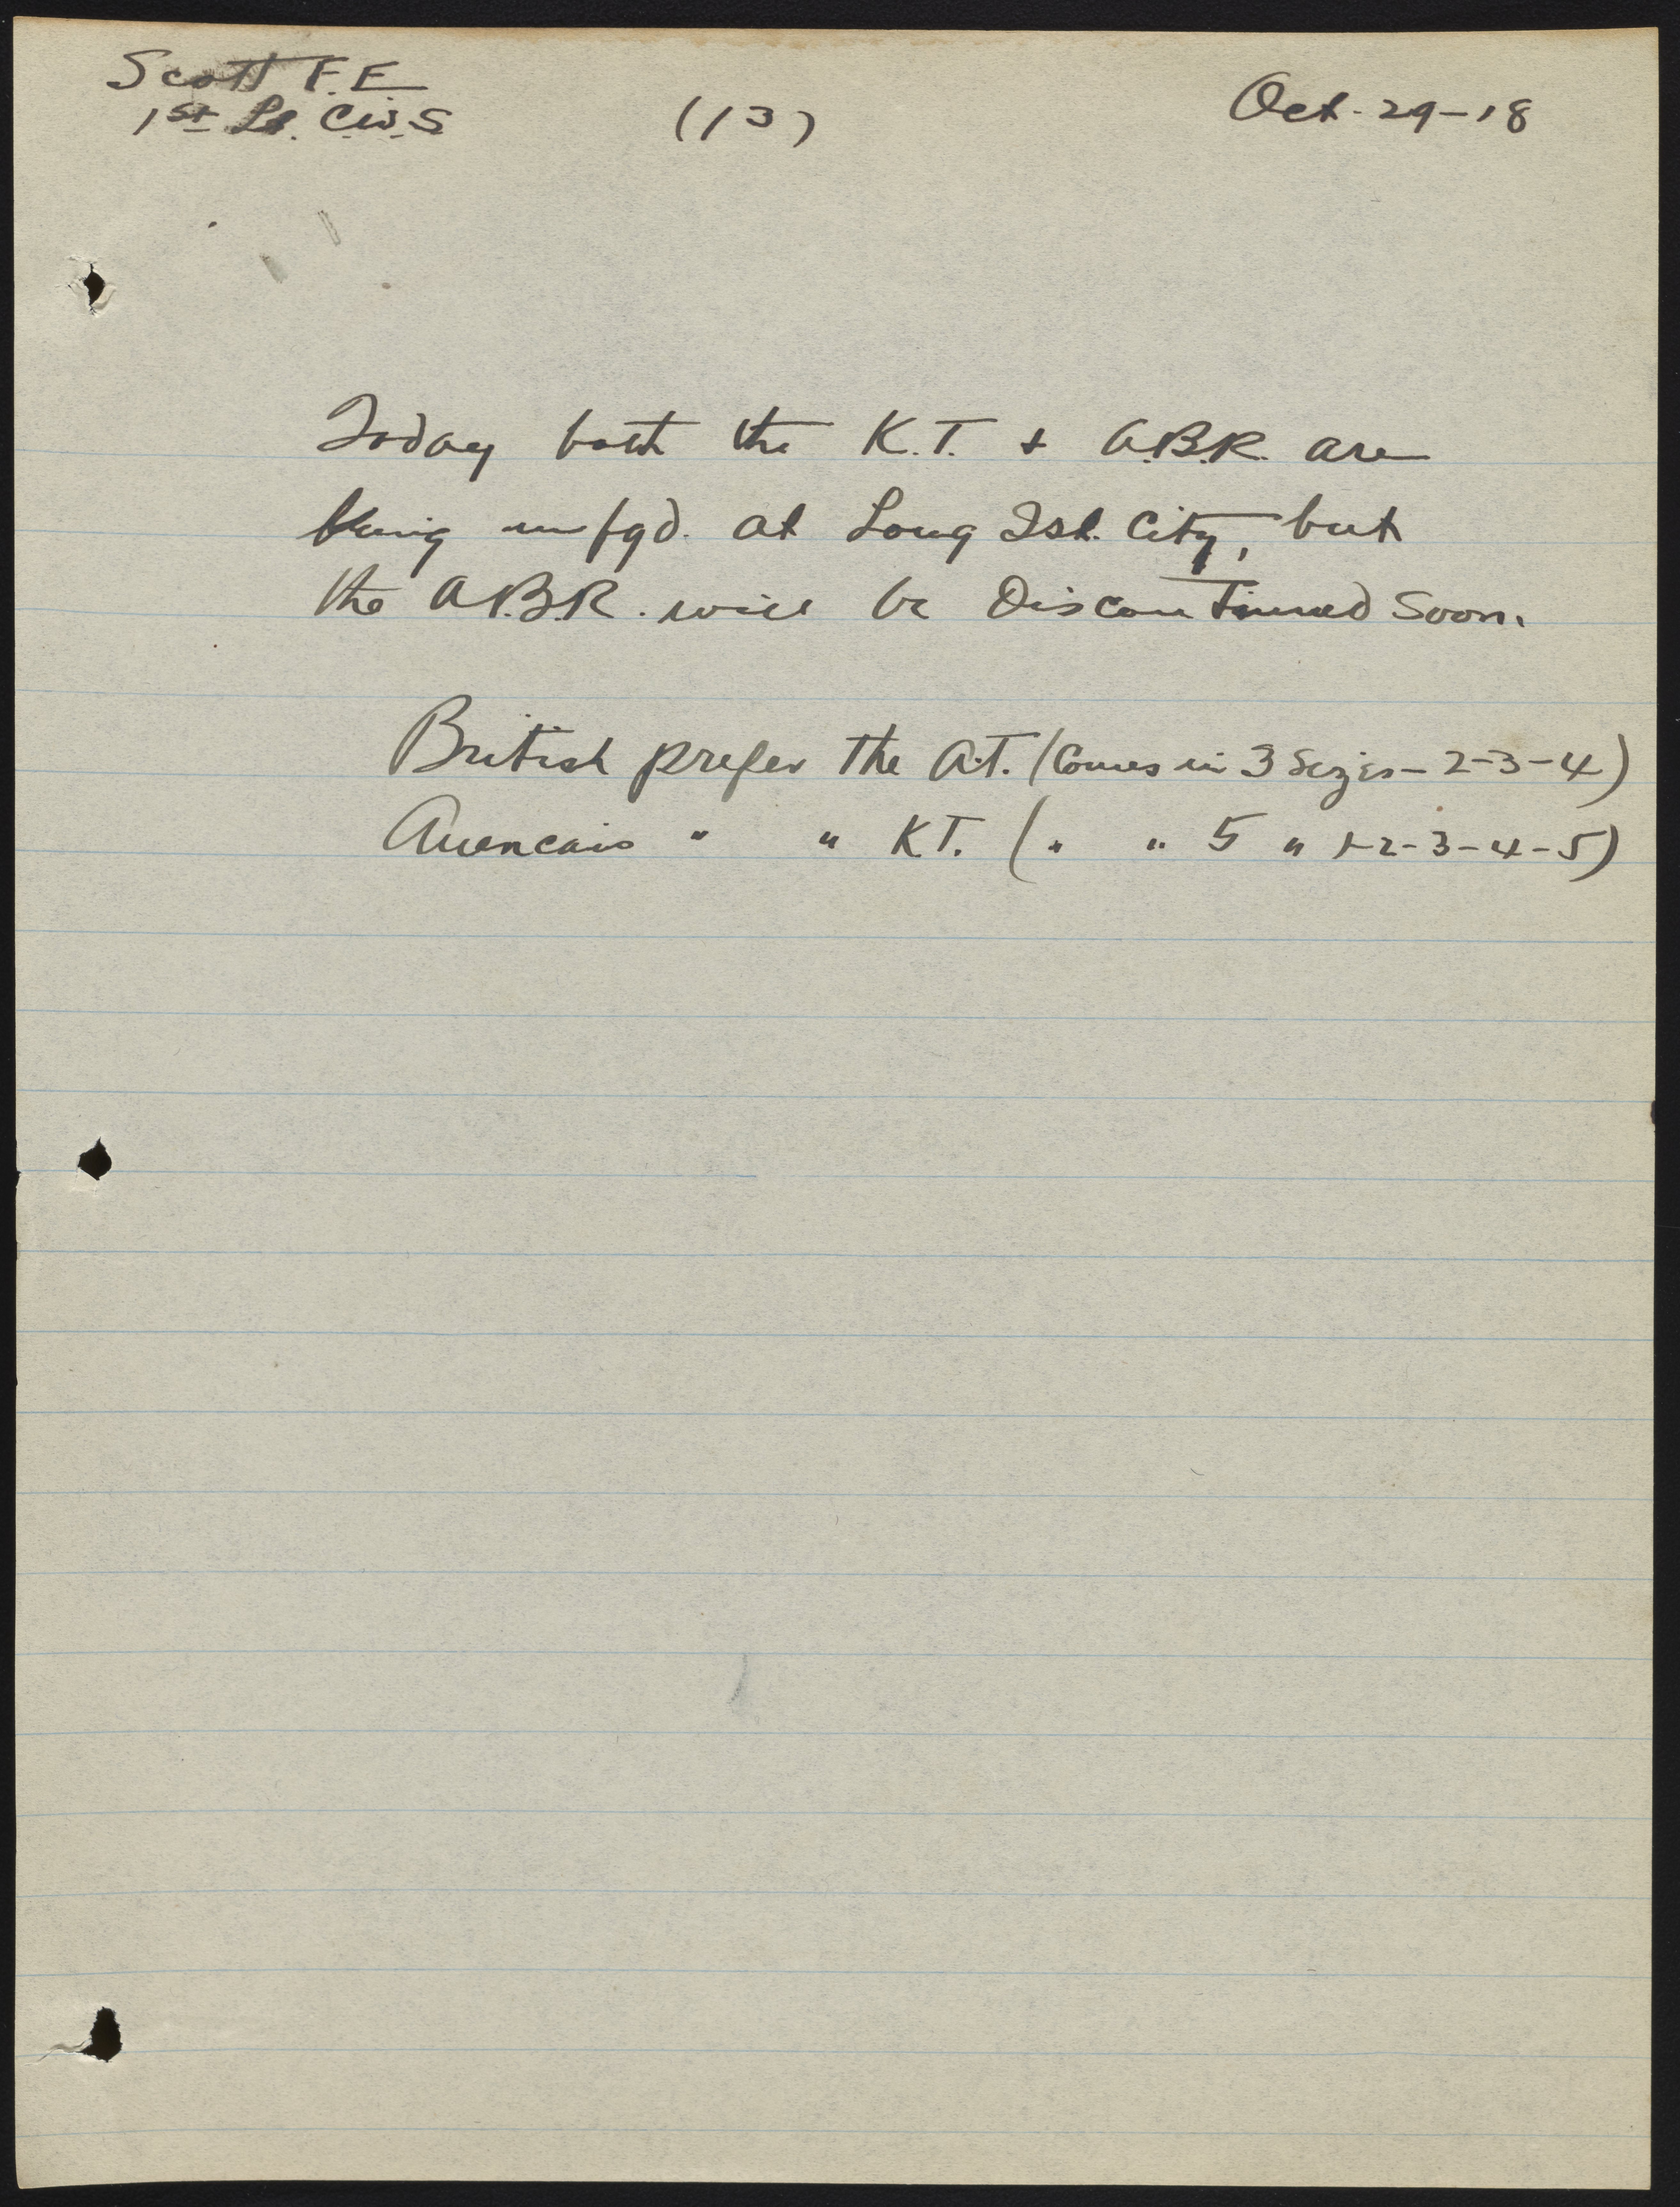 Scott F.E
1st Lt. C.W.S
(13)
Oct. 29-18
Today both the K.T. + A.B.R. are
being mfgd. at Long Isl. City, but
the A.B.R. will be Discontinued Soon.
British prefer the A.T. (Comes in 3 Sizes - 2-3-4)
Americans " " K.T. (" " 5 " 1-2-3-4-5)